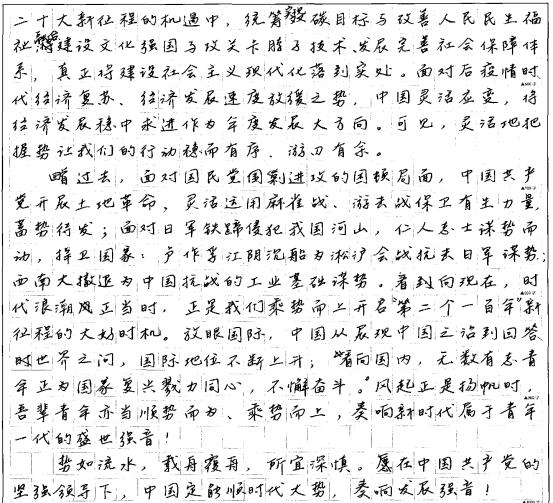 二十大新征程的机遇中，统筹双碳目标与改善人民民生福
祉，将建设文化强国与攻关卡脖子技术、发展完善社会保障体
系，真正将建设社会主义现代化落到实处。面对后疫情时
代经济复苏、经济发展速度放缓之势，中国灵活应变，将
经济发展稳中求进作为年度发展大方向。可见，灵活地把
握势让我们的行动稳而有序、游刃有余。
瞻过去，面对国民党围剿进攻的困顿局面，中国共产
党开展土地革命，灵活运用麻雀战、游击战保卫有生力量，
蓄势待发；面对日军铁蹄侵犯我国河山，仁人志士谋势而
动，捍卫国家：卢作孚江阴沉船为淞沪会战抗击日军谋势；
西南大撤退为中国抗战的工业基础谋势。看到向现在，时
代浪潮风正当时，正是我们乘势而上开启"第二个一百年"新
征程的大好时机。放眼国际，中国从展现中国之治到回答
时世界之问，国际地位不断上升；看向国内，无数有志青
年正为国家复兴戮力同心，不懈奋斗。"风起正是扬帆时，
吾辈青年亦当顺势而为、乘势而上，奏响新时代属于青年
一代的盛世强音！
势如流水，载舟覆舟，所宜深慎。愿在中国共产党的
坚强领导下，中国定能顺时代大势，奏响发展强音！